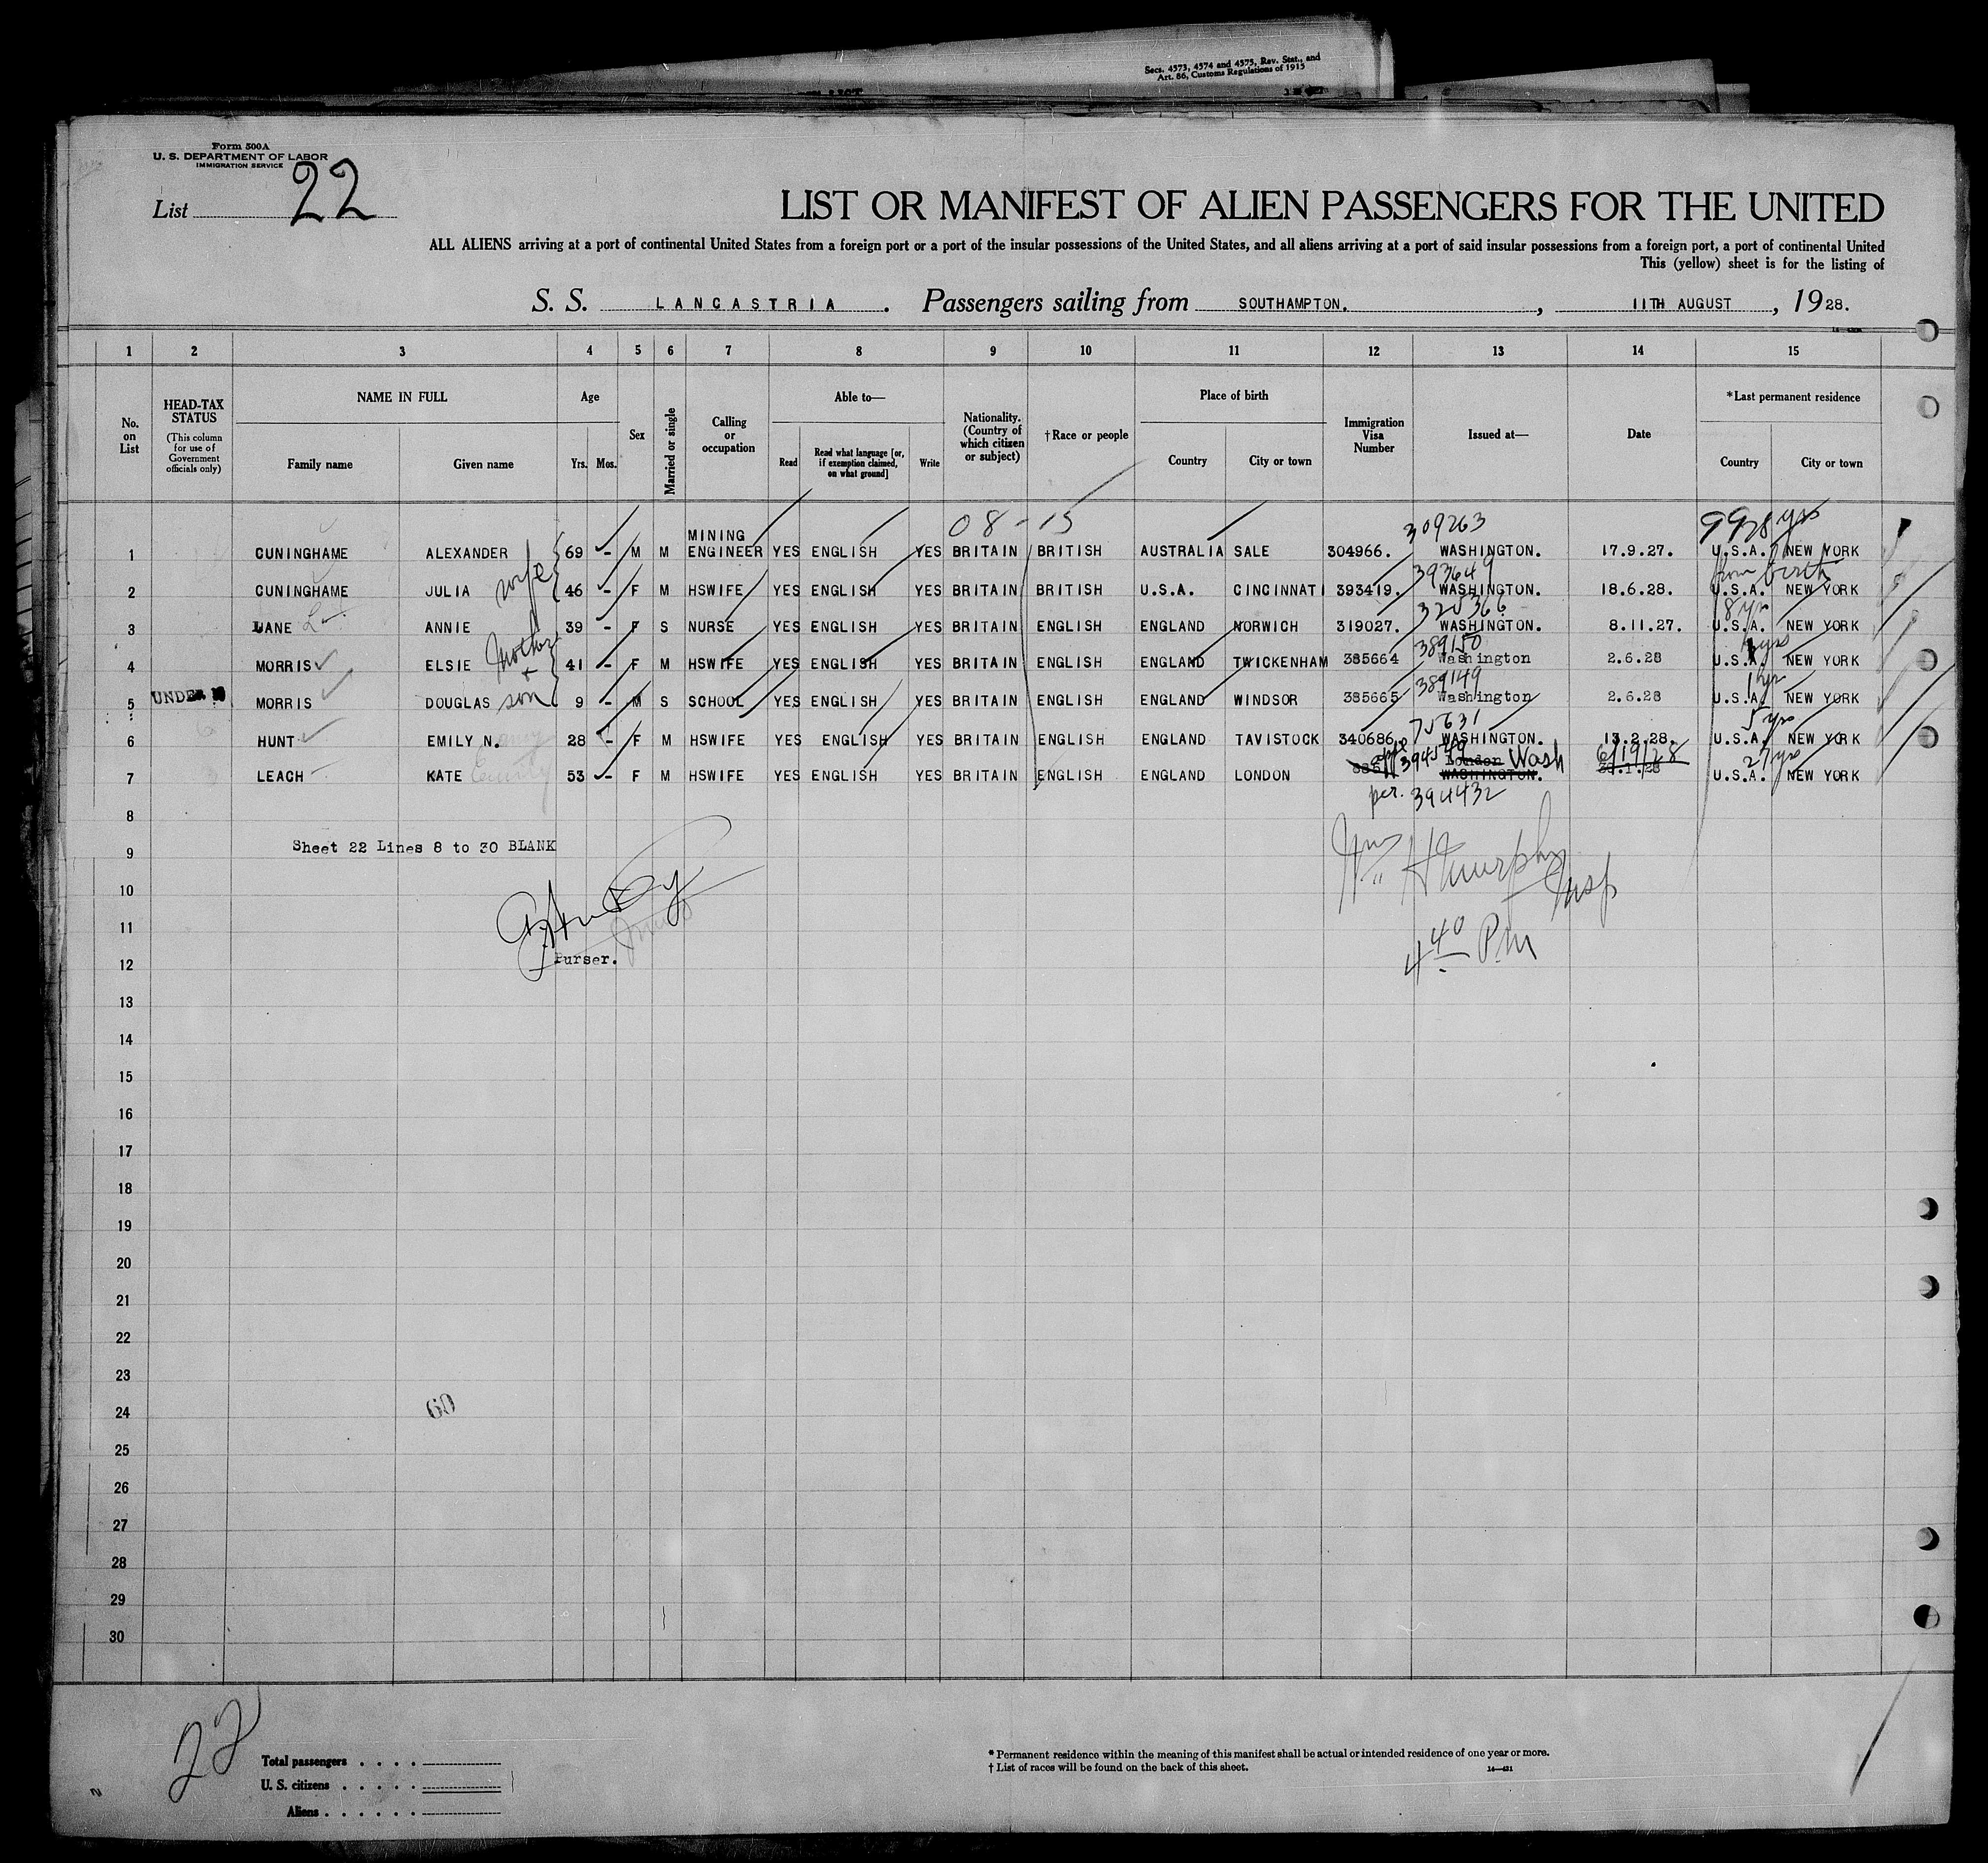 Secs. 4573, 4574 and 4575, Rev. Stat., and
Art. 86, Customs Regulations of 1915
Form 500A
U. S. DEPARTMENT OF LABOR
IMMIGRATION SERVICE
List 22
LIST OR MANIFEST OF ALIEN PASSENGERS FOR THE UNITED
ALL ALIENS arriving at a port of continental United States from a foreign port or a port of the insular possessions of the United States, and all aliens arriving at a port of said insular possessions from a foreign port, a port of continental United
This (yellow) sheet is for the listing of
S. S. LANCASTRIA. Passengers sailing from SOUTHAMPTON., 11TH AUGUST, 1928.
1 2 3 4 5 6 7 8 9 10 11 12 13 14 15
No. on List
HEAD-TAX STATUS
(This column for use of Government officials only)
NAME IN FULL
Family name Given name
Age
Yrs. Mos.
Sex
Married or single
Calling or occupation
Able to—
Read
Read what language [or, if exemption claimed, on what ground]
Write
Nationality. (Country of which citizen or subject)
†Race or people
Place of birth
Country City or town
Immigration Visa Number
Issued at—
Date
*Last permanent residence
Country City or town
08-15 309263 28 yrs
1 CUNINGHAME ALEXANDER 69 - M M MINING ENGINEER YES ENGLISH YES BRITAIN BRITISH AUSTRALIA SALE 304966. WASHINGTON. 17.9.27. U.S.A. NEW YORK
wife 393649 from birth
2 CUNINGHAME JULIA 46 - F M HSWIFE YES ENGLISH YES BRITAIN BRITISH U.S.A. CINCINNATI 393419. WASHINGTON. 18.6.28. U.S.A. NEW YORK
320366 8 yrs
3 LANE L ANNIE 39 - F S NURSE YES ENGLISH YES BRITAIN ENGLISH ENGLAND NORWICH 319027. WASHINGTON. 8.11.27. U.S.A. NEW YORK
Mother + 389150 yrs
4 MORRIS ELSIE 41 - F M HSWIFE YES ENGLISH YES BRITAIN ENGLISH ENGLAND TWICKENHAM 385664 Washington 2.6.28 U.S.A. NEW YORK
389149 1 yr
5 UNDER MORRIS DOUGLAS son 9 - M S SCHOOL YES ENGLISH YES BRITAIN ENGLISH ENGLAND WINDSOR 385665 Washington 2.6.28 U.S.A. NEW YORK
75631 5 yrs
6 HUNT EMILY N. 28 - F M HSWIFE YES ENGLISH YES BRITAIN ENGLISH ENGLAND TAVISTOCK 340686. WASHINGTON. 13.2.28. U.S.A. NEW YORK
394549 London Wash 6/19/28 27 yrs
7 LEACH KATE 53 - F M HSWIFE YES ENGLISH YES BRITAIN ENGLISH ENGLAND LONDON WASHINGTON. U.S.A. NEW YORK
per. 394432
8
Sheet 22 Lines 8 to 30 BLANK
9
Wm H Murphy
Insp
10
11
4 40 PM
Purser.
12
13
14
15
16
17
18
19
20
21
22
23
60
24
25
26
27
28
29
30
22
Total passengers
U. S. citizens
Aliens
* Permanent residence within the meaning of this manifest shall be actual or intended residence of one year or more.
† List of races will be found on the back of this sheet.
14—431